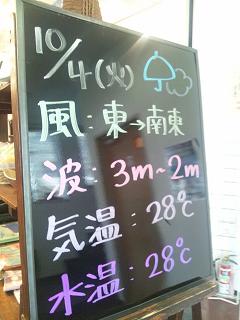 10/4(火)
風:東→南東
波:3m~2m
気温:28℃
水温:28℃